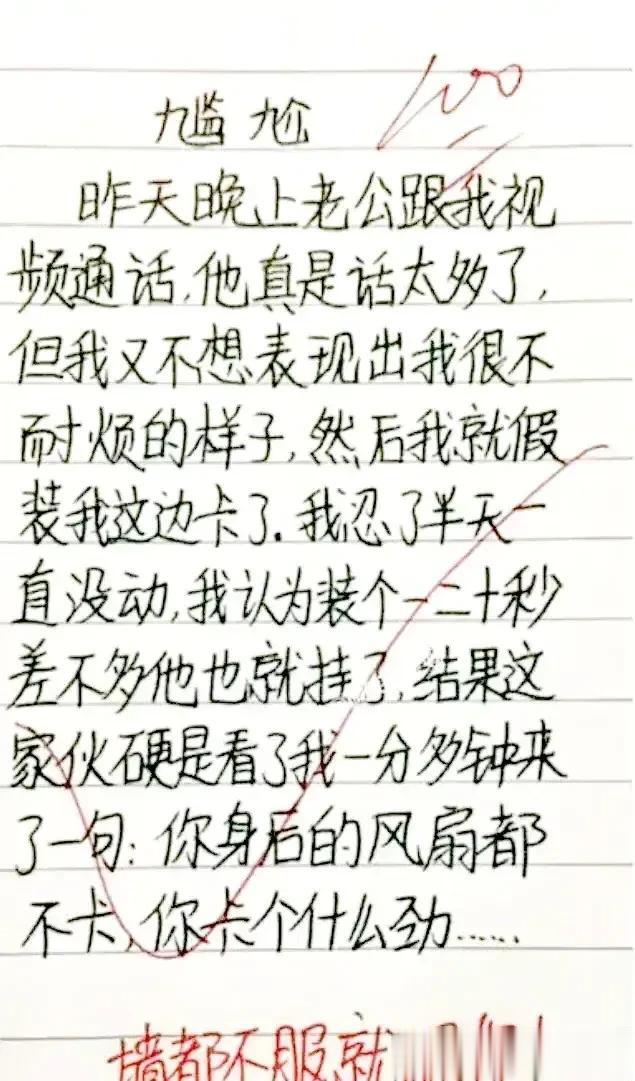 尴尬
100
昨天晚上老公跟我视
频通话,他真是话太多了,
但我又不想表现出我很不
耐烦的样子,然后我就假
装我这边卡了.我忍了半天一
直没动,我认为装个一二十秒
差不多他也就挂了,结果这
家伙硬是看了我一分多钟来
了一句:你身后的风扇都
不卡,你卡个什么劲......
墙都不服就